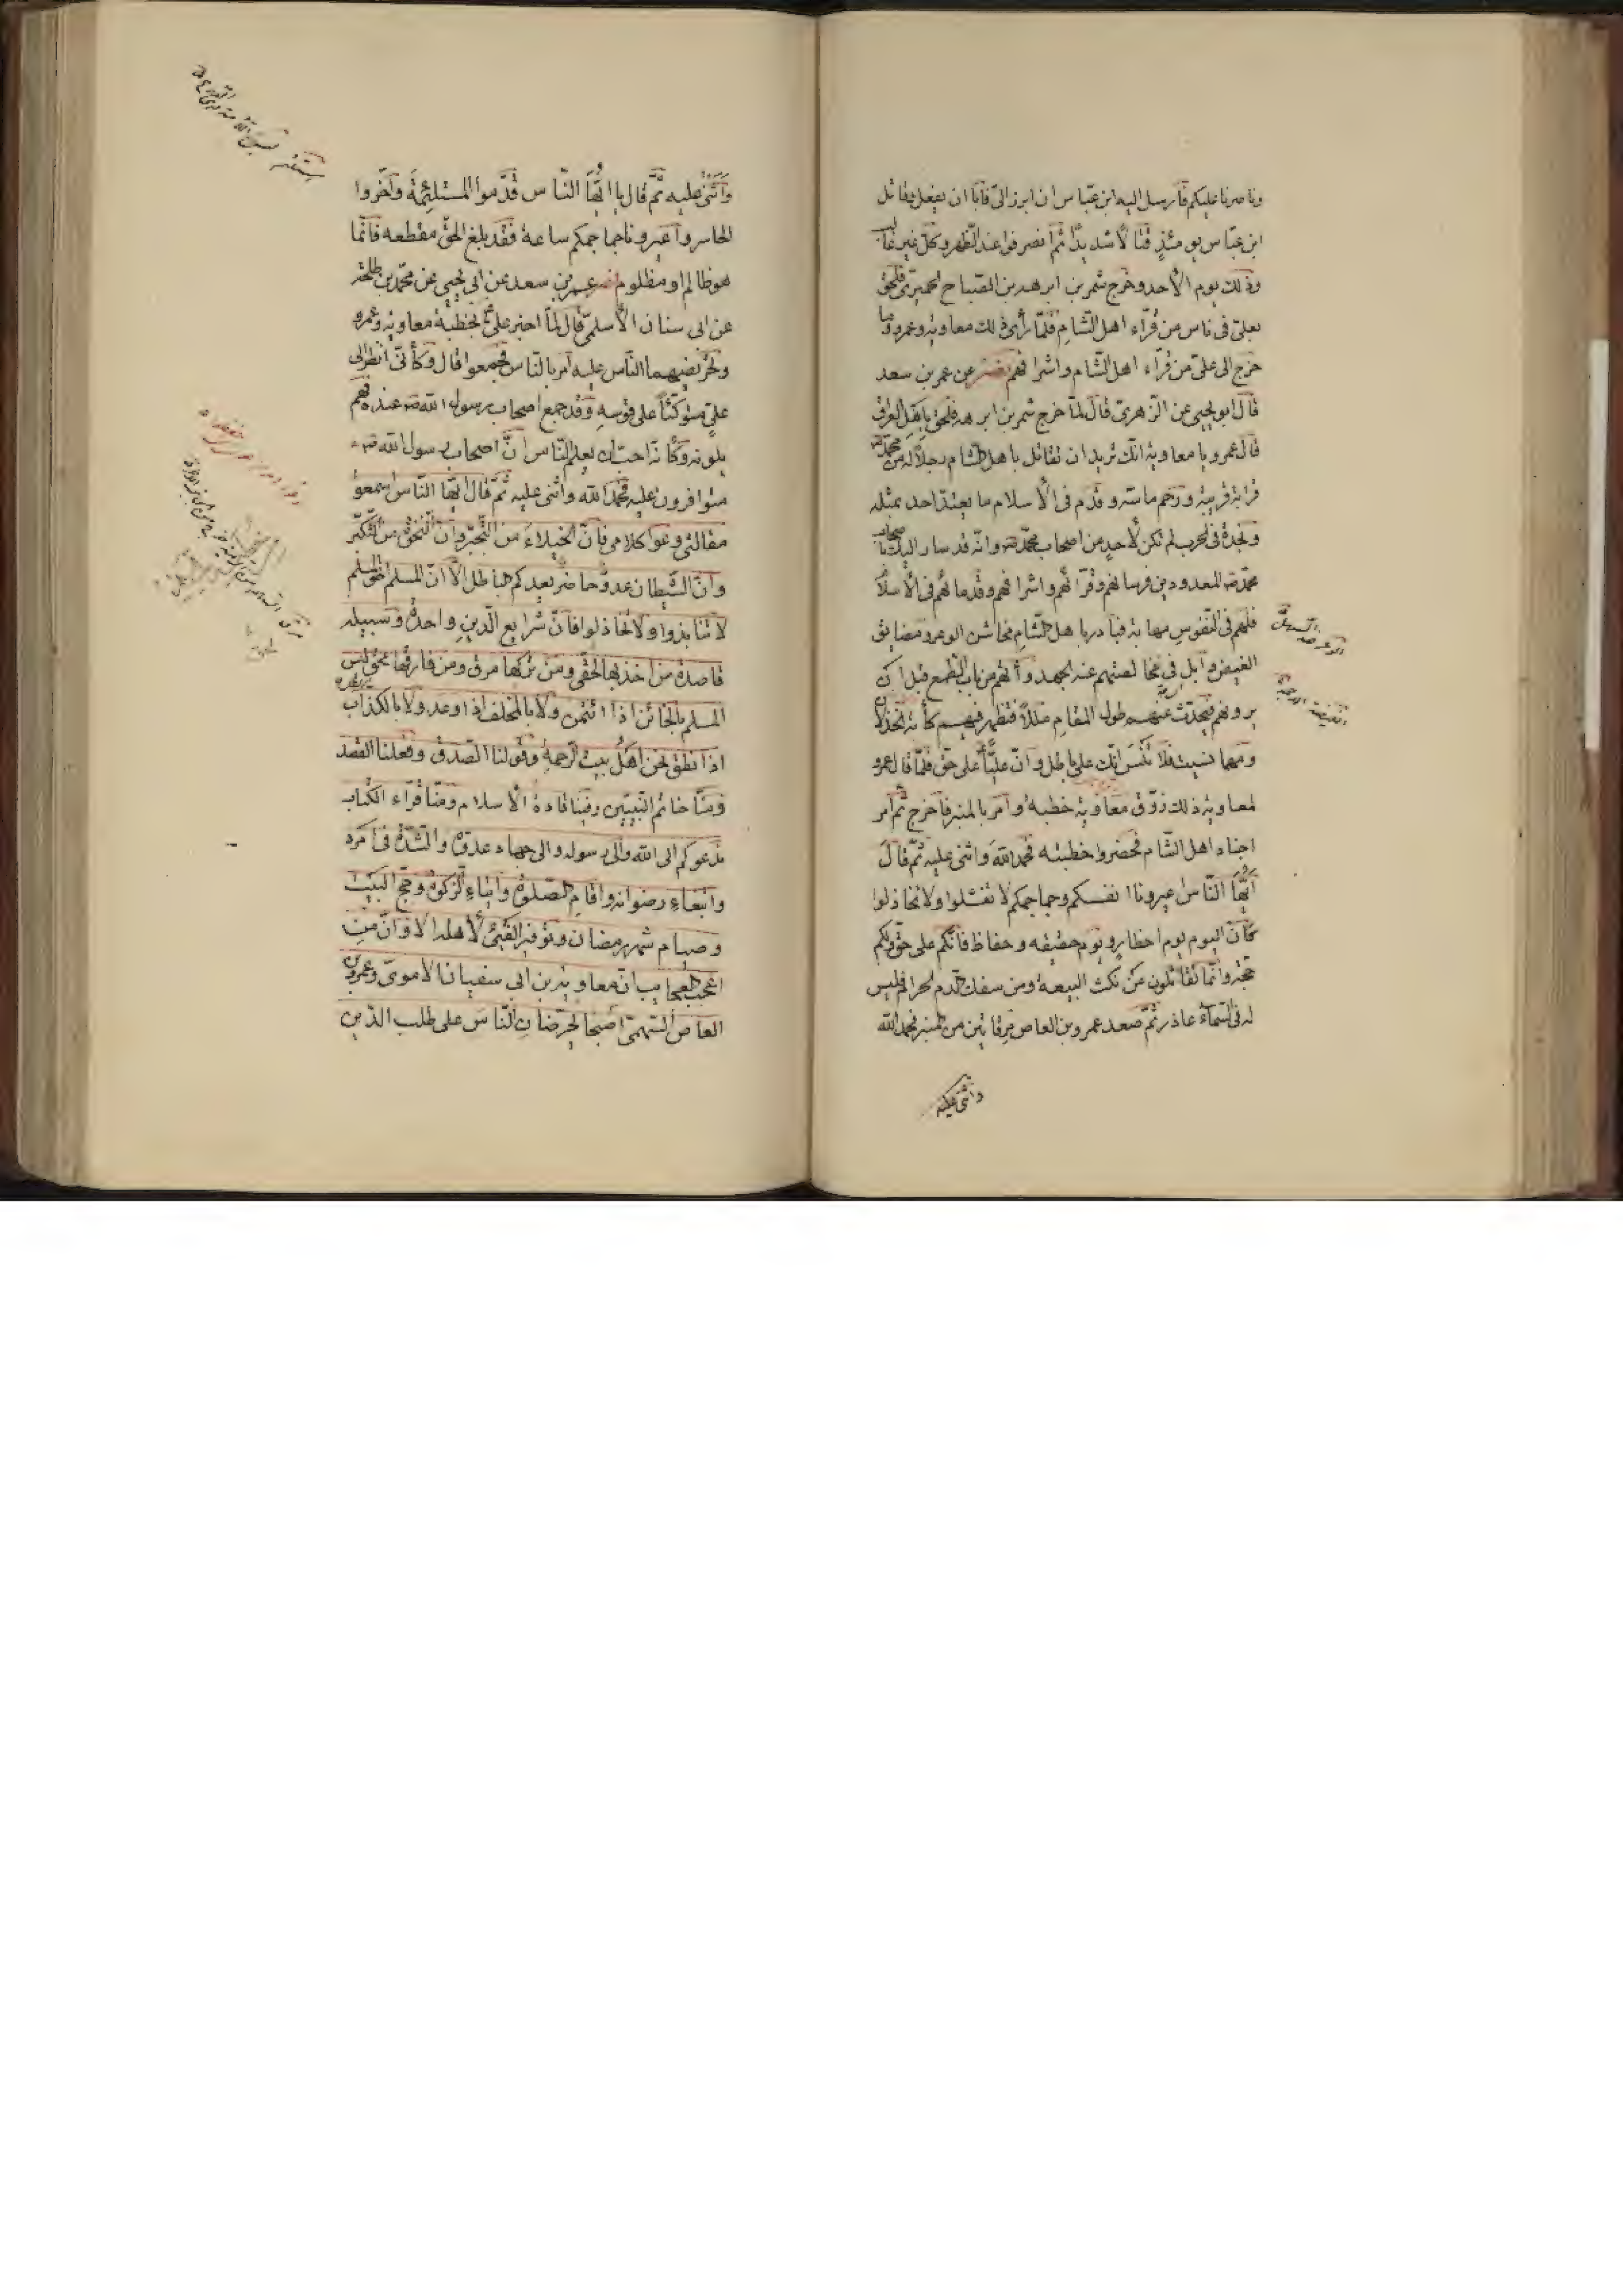 وناصرنا عليكم فارسل اليه ابن عبّاس ان ابرز الىّ فأبا ان يفعل وقاتل
ابن عبّاس يومئذٍ قتالاً شديدًا ثم انصرفوا عند الظهر وكلّ غير غالب
وذلك يوم الأحد وخرج شمر بن ابرهه بن الصباح الحميرىّ فلحق
بعلىّ فى ناس من قرّاء اهل الشام فلمّا رأى ذلك معاويه وعمرو وما
خرج الى علىّ من قرّاء اهل الشام واشرافهم نصر عن عمر بن سعد
قال ابو يحيى عن الزهرىّ قال لمّا خرج شمر بن ابرهه فلحق باهل العراق
قال عمرو يا معاوية انّك تريد ان تقاتل باهل الشام رجلاً له من محمّد ص
قرابة قريبة ورحم ماسّه وقدم فى الأسلام ما يعتدّ احد بمثله
ونجدة فى الحرب لم تكن لأحدٍ من اصحاب محمّد ص وانّه قد سار اليك باصحاب
محمّد ص المعدودين وفرسانهم وقرّائهم واشرافهم وقدمائهم فى الأسلام
فلهم فى النفوس مهابة فبادر باهل الشام مخاشن الوعر ومضايق
الغيض واحملهم على الجهد وأتهم من باب الطمع قبل ان
يروفهم فيحدث عندهم طول المقام مللاً فتظهر فيهم كأبة الخذلان
ومهما نسيت فلا تنس انّك على باطل وانّ عليّاً على حق فلمّا قال عمرو
لمعاويه ذلك زوّق معاوية خطبه وأمر بالمنبر فأخرج ثمّ أمر
اجناد اهل الشام فحضروا خطبته فحمد الله واثنى عليه ثمّ قال
أيّها النّاس اعيرونا انفسكم وجماجمكم لا تفشلوا ولا تخاذلوا
فانّ اليوم يوم اخطار ويوم حقيقه وحفاظ فانّكم على حق وبكم
حجّة وانّما تقاتلون من نكث البيعه ومن سفك الدم الحرام فليس
له فى السّماء عاذر ثمّ صعد عمرو بن العاص مرقاتين من المنبر فحمد الله
واثنى عليه
الوعر ضد السهل
وأثنى عليه ثمّ قال يا ايّها النّاس قدّموا المستلئمة وأخّروا
الحاسر وأعيرونا جماجمكم ساعة فقد بلغ الحق مقطعه فانّما
هو ظالم او مظلوم نصر عمر بن سعد عن ابى يحيى عن محمّد بن طلحة
عن ابى سنان الأسلمىّ قال لمّا اخبر علىّ بخطبة معاويه وعمرو
وتحريضهما النّاس عليه أمر بالنّاس فجمعوا قال وكأنّى انظر الى
علىّ متوكّئاً على قوسه وقد جمع اصحاب رسول الله ص عنده فهم
يلونه وكانّه احبّ ان يعلم النّاس انّ اصحاب رسول الله ص
متوافرون عليه فحمد الله واثنى عليه ثمّ قال ايّها النّاس اسمعوا
مقالتى وعوا كلامى فانّ الخيلاء من التّجبّر وانّ النخوة من التّكبّر
وانّ الشّيطان عدوّ حاضر يعدكم الباطل ألا انّ المسلم اخو المسلم
لا تنابذوا ولا تخاذلوا فانّ شرايع الدّين واحدة وسبيله
قاصدة من اخذ بها لحق ومن تركها مرق ومن فارقها محق ليس
المسلم بالخائن اذا ائتمن ولا بالمخلف اذا وعد ولا بالكذّاب
اذا نطق نحن اهل بيت الرّحمة وقولنا الصّدق وفعلنا القصد
ومنّا خاتم النّبيّين وفينا قادة الأسلام ومنّا قرّاء الكتاب
ندعوكم الى الله والى رسوله والى جهاد عدوّه والشدّة فى امره
وابتغاء رضوانه واقام الصّلوة وايتاء الزّكوة وحجّ البيت
وصيام شهر رمضان وتوفير الفىء لأهله الا وانّ من
اعجب العجايب انّ معاوية بن ابى سفيان الأموىّ وعمرو بن
العاص السّهمىّ أصبحا يحرّضان النّاس على طلب الدّين